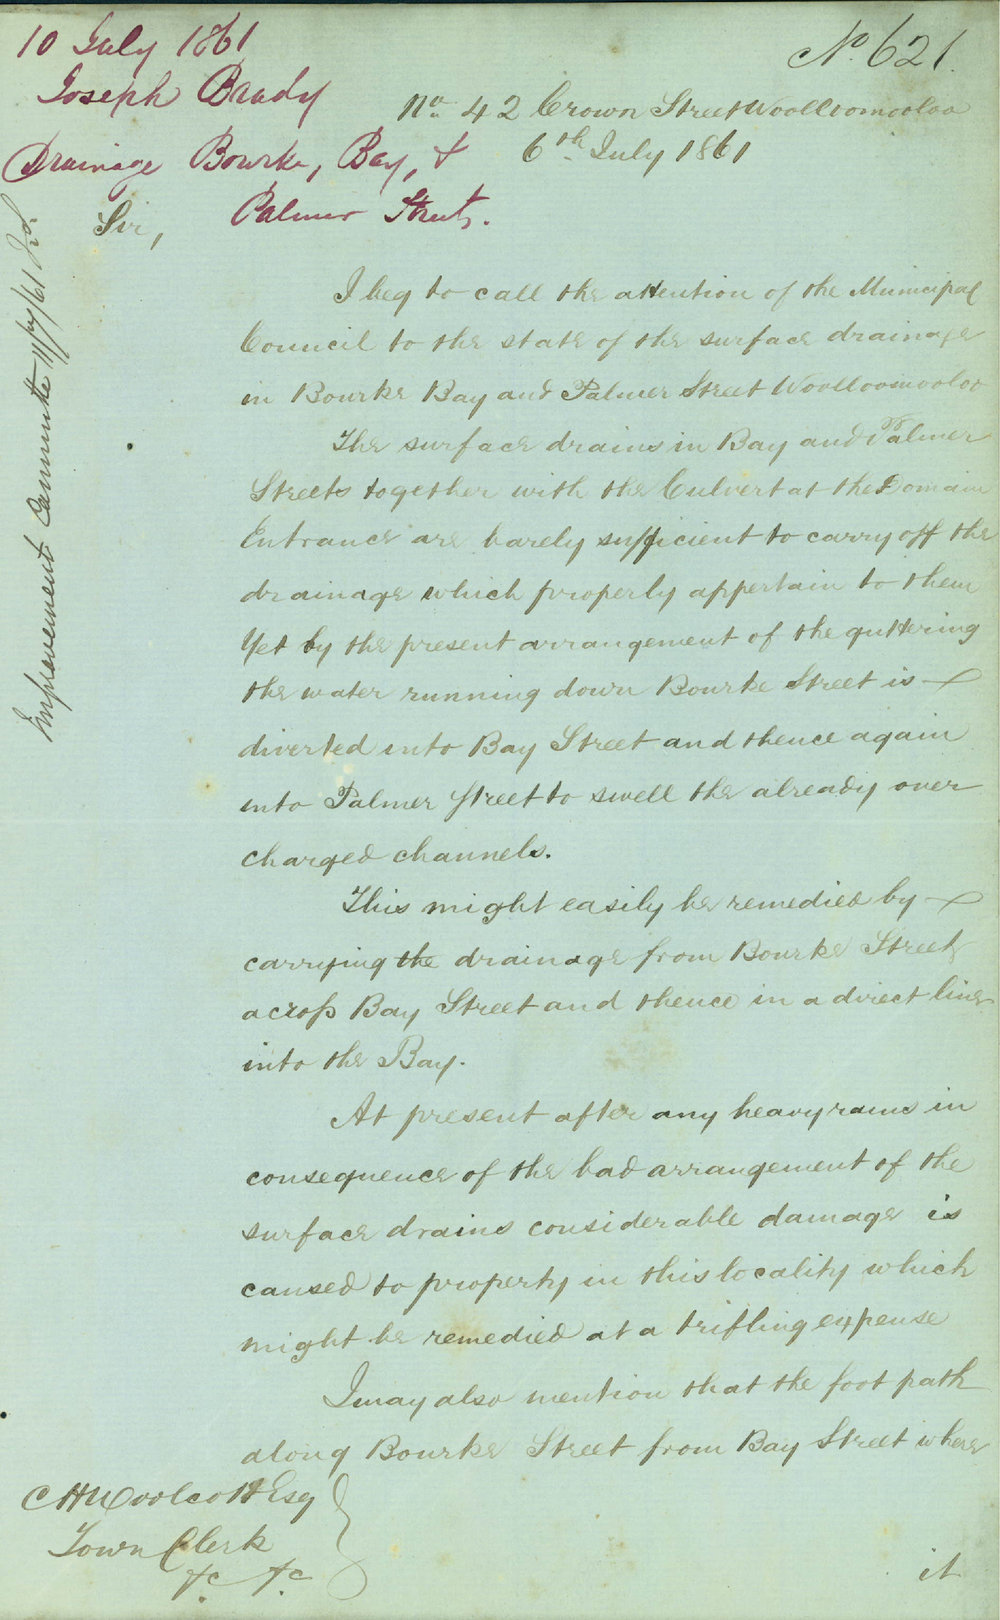 10 July 1861
Joseph Brady
Drainage Bourke, Bay, &
Palmer Streets.
No. 621.
No. 42 Crown Street Woolloomooloo
6th July 1861
Improvement Committee 11/7/61
Sir,
I beg to call the attention of the Municipal
Council to the state of the surface drainage
in Bourke Bay and Palmer Street Woolloomooloo
The surface drains in Bay and Palmer
Streets together with the Culvert at the Domain
Entrance are barely sufficient to carry off the
drainage which properly appertain to them
Yet by the present arrangement of the guttering
the water running down Bourke Street is —
diverted into Bay Street and thence again
into Palmer Street to swell the already over
charged channels.
This might easily be remedied by —
carrying the drainage from Bourke Street
across Bay Street and thence in a direct line
into the Bay.
At present after any heavy rains in
consequence of the bad arrangement of the
surface drains considerable damage is
caused to property in this locality which
might be remedied at a trifling expense
I may also mention that the foot path
along Bourke Street from Bay Street where
C H Woolcott Esq
Town Clerk
&c &c
it